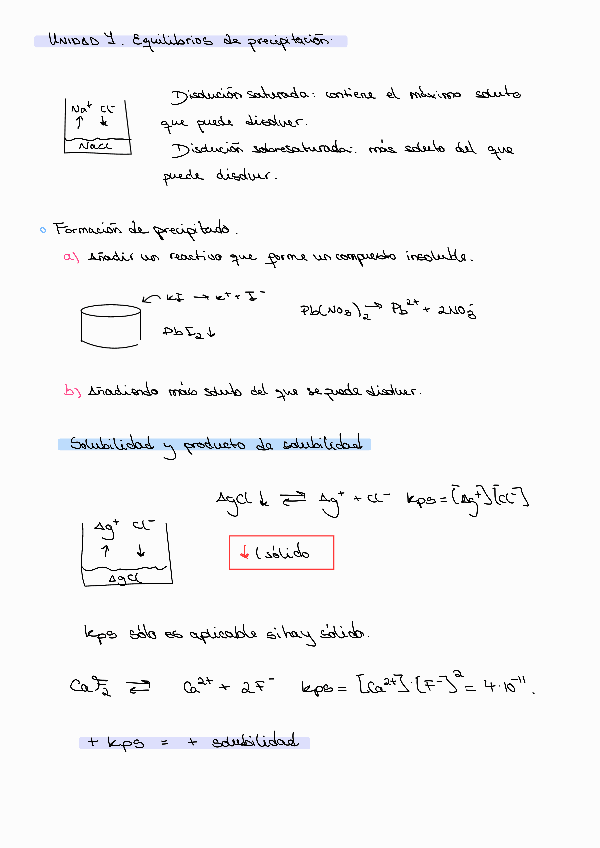 UNIDAD 7. Equilibrios de precipitación.
Na⁺ Cl⁻
↑ ↓
NaCl
Disolución saturada: contiene el máximo soluto
que puede disolver.
Disolución sobresaturada: más soluto del que
puede disolver.
Formación de precipitado.
a) Añadir un reactivo que forme un compuesto insoluble.
KI → K⁺ + I⁻
PbI₂ ↓
Pb(NO₃)₂ → Pb²⁺ + 2NO₃⁻
b) Añadiendo más soluto del que se puede disolver.
Solubilidad y producto de solubilidad
AgCl ↓ ⇌ Ag⁺ + Cl⁻ kps = [Ag⁺][Cl⁻]
Ag⁺ Cl⁻
↑ ↓
AgCl
↓ (sólido
kps sólo es aplicable si hay sólido.
CaF₂ ⇌ Ca²⁺ + 2F⁻ kps = [Ca²⁺]·[F⁻]² = 4·10⁻¹¹.
+ kps = + solubilidad